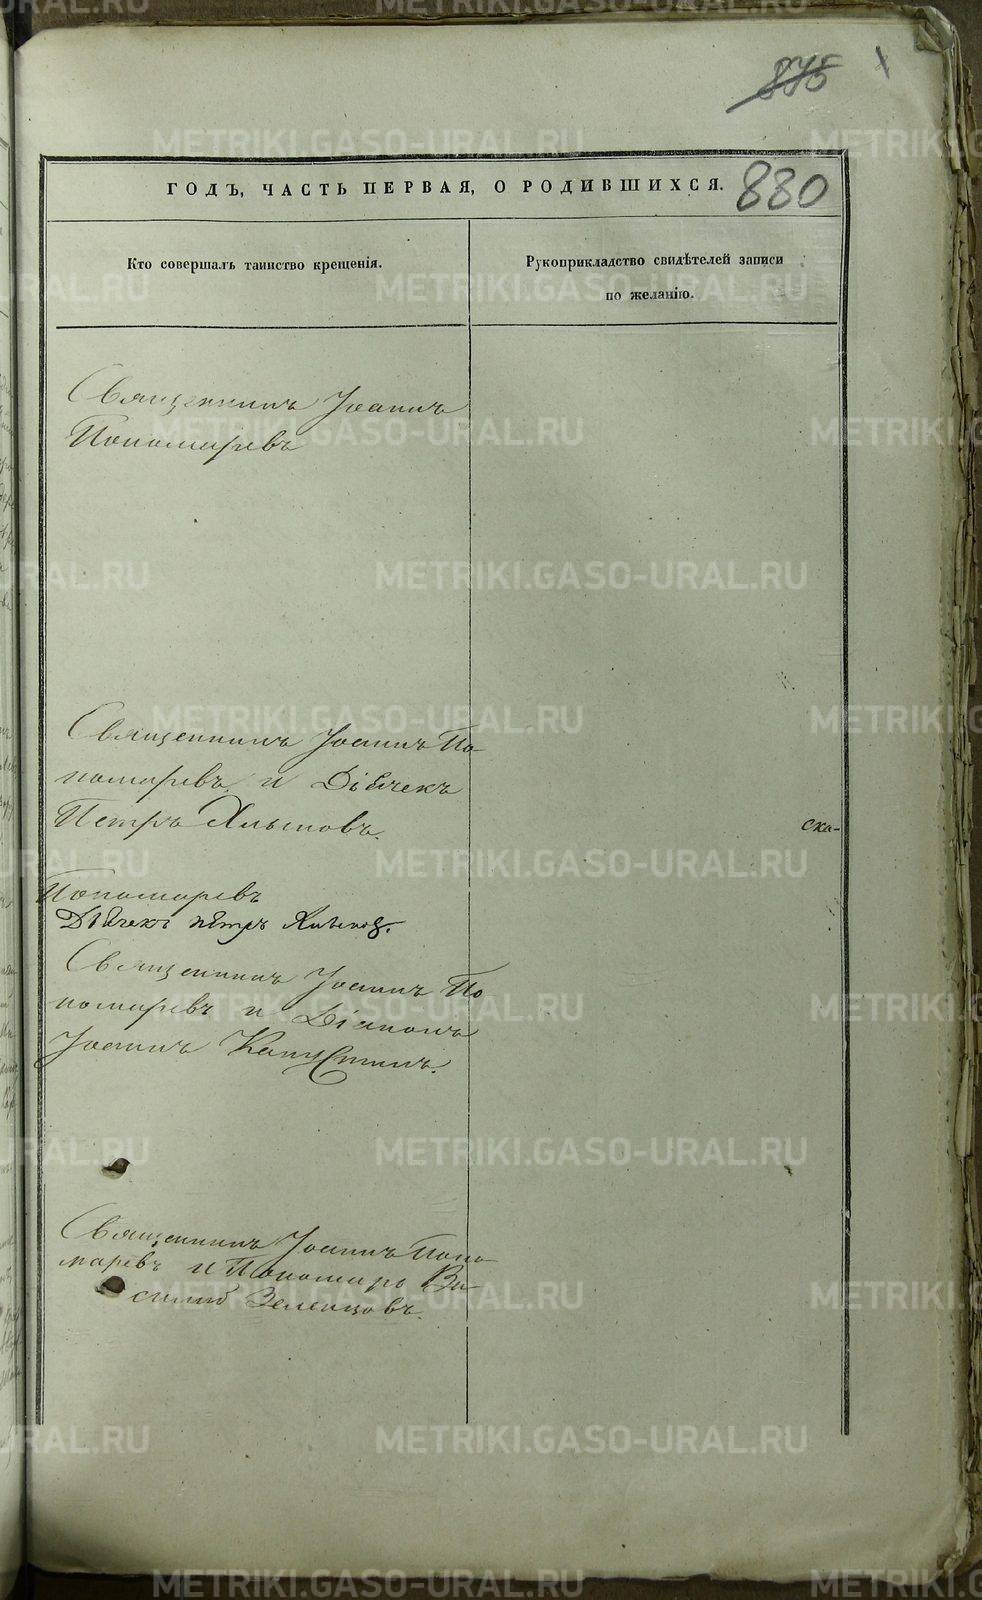 875
880
ГОДЪ, ЧАСТЬ ПЕРВАЯ, О РОДИВШИХСЯ.
Кто совершалъ таинство крещенія.
Рукоприкладство свидѣтелей записи
по желанію.
Священникъ Іоаннъ
Пономаревъ
Священникъ Іоаннъ По-
номаревъ и Дьячекъ
Петръ Хлыновъ.
ска-
Пономаревъ
Дьячекъ Петръ Хлынов.
Священникъ Іоаннъ По
номаревъ и Діаконъ
Іоаннъ Капустинъ.
Священникъ Іоаннъ Поно-
маревъ и Пономарь Ва-
силий Зеленцовъ.
METRIKI.GASO-URAL.RU